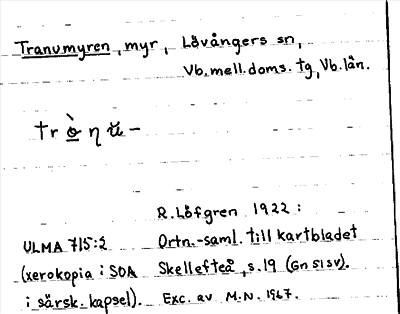 Tranumyren, myr, Lövångers sn,
Vb. mell. doms. tg, Vb. län.
trò̱ŋŭ-
R. Löfgren 1922:
ULMA 715:2 Ortn.-saml. till kartbladet
(xerokopia i SOA Skellefteå, s. 19 (Gn 51 SV).
i särsk. kapsel). Exc. av M.N. 1967.